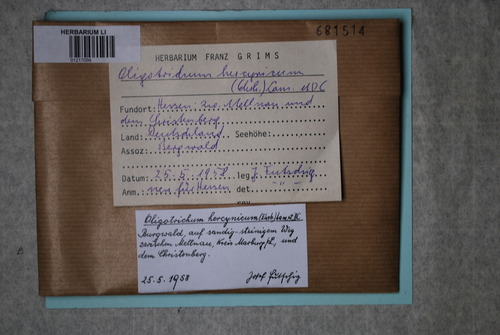 HERBARIUM LI
681514
HERBARIUM FRANZ GRIMS
Oligotrichum hercynicum
(Ehrh.) Lam. et DC
Fundort: Hessen: zw. Mellnau und
dem Christenberg
Land: Deutschland Seehöhe:
Assoz: Burgwald
Datum: 25.5.1958 leg. J. Futschig
Anm.: neu für Hessen det. -"-
Oligotrichum hercynicum (Ehrh.) Lam. et DC.
Burgwald, auf sandig-steinigem Weg
zwischen Mellnau, Kreis Marburg/L., und
dem Christenberg.
25.5.1958 Josef Futschig